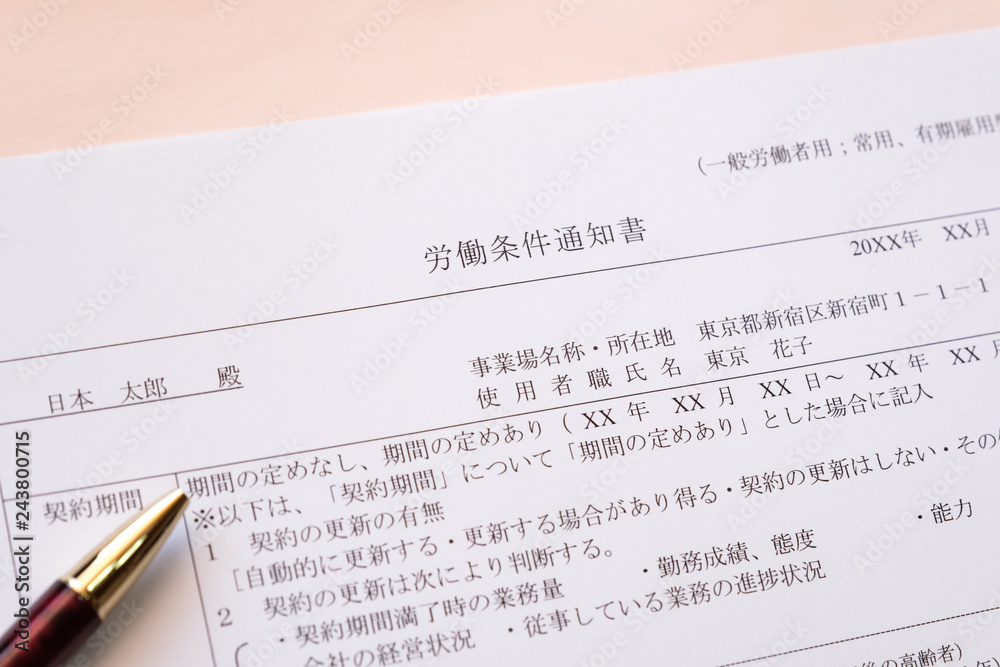 (一般労働者用；常用、有期雇用
労働条件通知書
20XX年　XX月
日本　太郎　　殿
事業場名称・所在地　東京都新宿区新宿町１－１－１
使 用 者 職 氏 名　東京　花子
契約期間
期間の定めなし、期間の定めあり（ XX 年　XX 月　XX 日～　XX 年　XX
※以下は、「契約期間」について「期間の定めあり」とした場合に記入
１　契約の更新の有無
［自動的に更新する・更新する場合があり得る・契約の更新はしない・その
２　契約の更新は次により判断する。
・契約期間満了時の業務量　　・勤務成績、態度　　・能力
会社の経営状況　・従事している業務の進捗状況
の高齢者）
Adobe Stock | #243800715
Adobe Stock